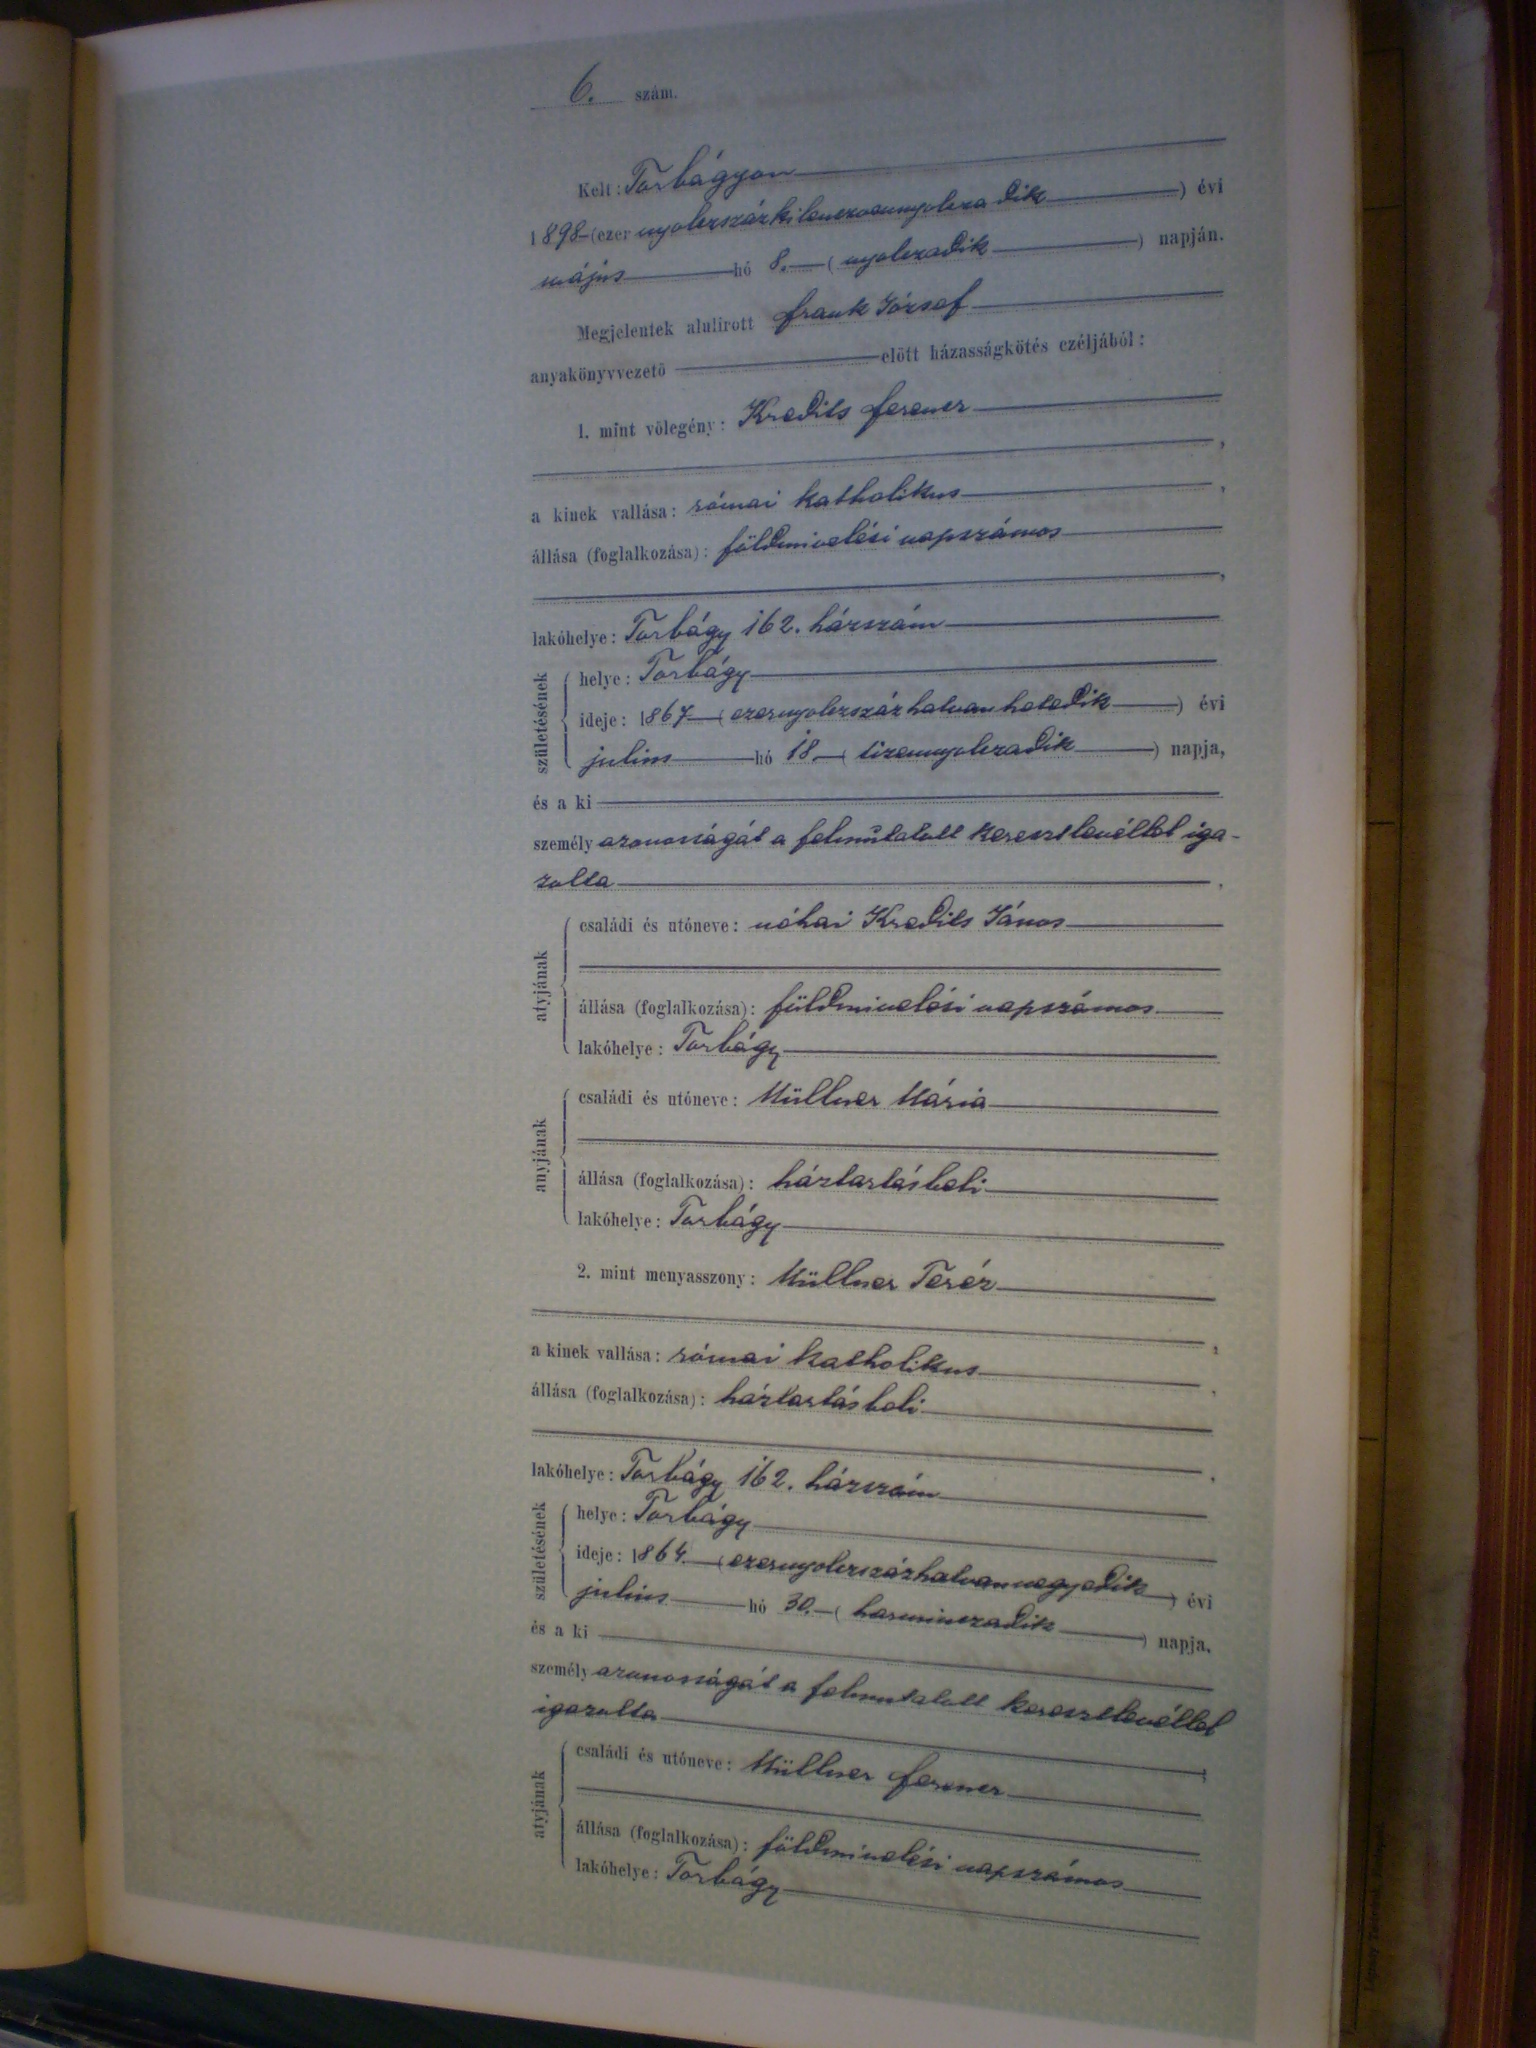 6. szám.
Kelt: Torbágyon
1898 (ezer nyolczszázkilenczvennyolczadik) évi
május hó 8. (nyolczadik) napján.
Megjelentek alulirott Frank József
anyakönyvvezető előtt házasságkötés czéljából:
1. mint vőlegény: Kredits Ferencz
,
a kinek vallása: római katholikus,
állása (foglalkozása): földmivelési napszámos
,
lakóhelye: Torbágy 162. házszám
születésének
helye: Torbágy
ideje: 1867 (ezernyolczszázhatvanhetedik) évi
julius hó 18. (tizennyolczadik) napja,
és a ki
személyazonosságát a felmutatott keresztlevéllel iga-
zolta,
atyjának
családi és utóneve: néhai Kredits János
állása (foglalkozása): földmivelési napszámos
lakóhelye: Torbágy
anyjának
családi és utóneve: Müllner Mária
állása (foglalkozása): háztartásbeli
lakóhelye: Torbágy
2. mint menyasszony: Müllner Teréz
,
a kinek vallása: római katholikus,
állása (foglalkozása): háztartásbeli
,
lakóhelye: Torbágy 162. házszám
születésének
helye: Torbágy
ideje: 1864 (ezernyolczszázhatvannegyedik) évi
julius hó 30. (harminczadik) napja,
és a ki
személyazonosságát a felmutatott keresztlevéllel
igazolta,
atyjának
családi és utóneve: Müllner Ferencz
állása (foglalkozása): földmivelési napszámos
lakóhelye: Torbágy